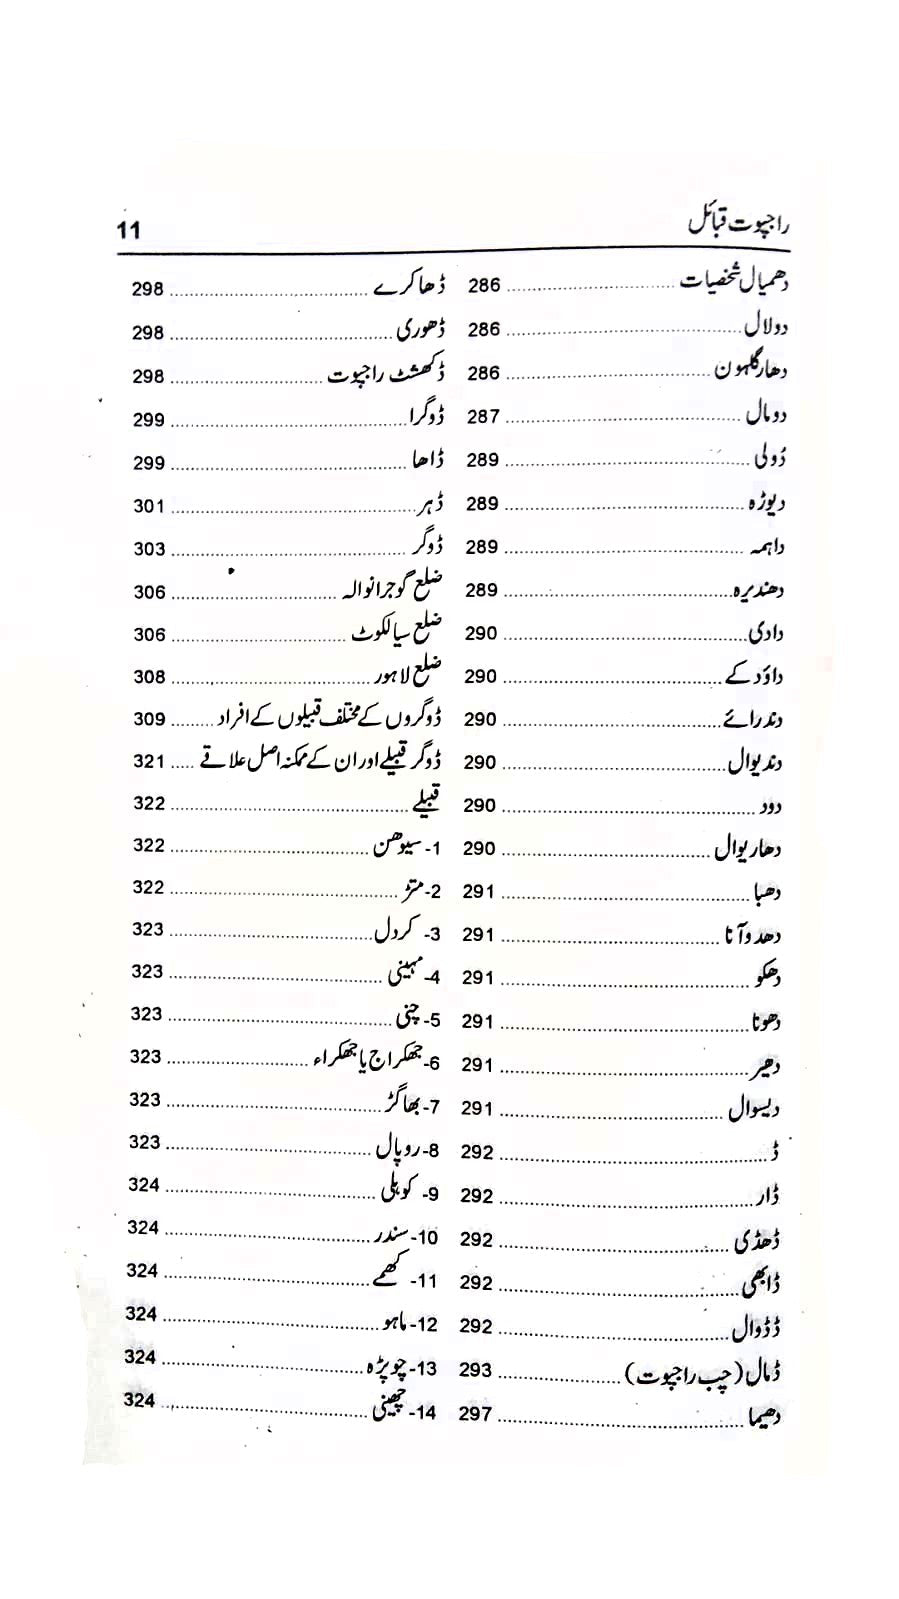 راجپوت قبائل 11
دھمیال شخصیات 286
دولال 286
دھارگلہون 286
دومال 287
دُولی 289
دیوڑہ 289
داہمہ 289
دھندیرہ 289
دادی 290
داؤد کے 290
دندرائے 290
دندیوال 290
دود 290
دھاریوال 290
دھبا 291
دھدوآنا 291
دھکو 291
دھونا 291
دھیر 291
دیسوال 291
ڈ 292
ڈار 292
ڈھڈی 292
ڈابھی 292
ڈڈوال 292
ڈمال (چب راجپوت) 293
دھیما 297
ڈھاکرے 298
ڈھوری 298
ڈکھشٹ راجپوت 298
ڈوگرا 299
ڈاھا 299
ڈہر 301
ڈوگر 303
ضلع گوجرانوالہ 306
ضلع سیالکوٹ 306
ضلع لاہور 308
ڈوگروں کے مختلف قبیلوں کے افراد 309
ڈوگر قبیلے اور ان کے ممکنہ اصل علاقے 321
قبیلے 322
1- سیوھن 322
2- متڑ 322
3- کردل 323
4- مہینی 323
5- چنی 323
6- جھکراج یا جھکراء 323
7- بھاگڑ 323
8- روپال 323
9- کوہلی 324
10- سندر 324
11- کھمے 324
12- ماہو 324
13- چوپڑہ 324
14- چھینی 324